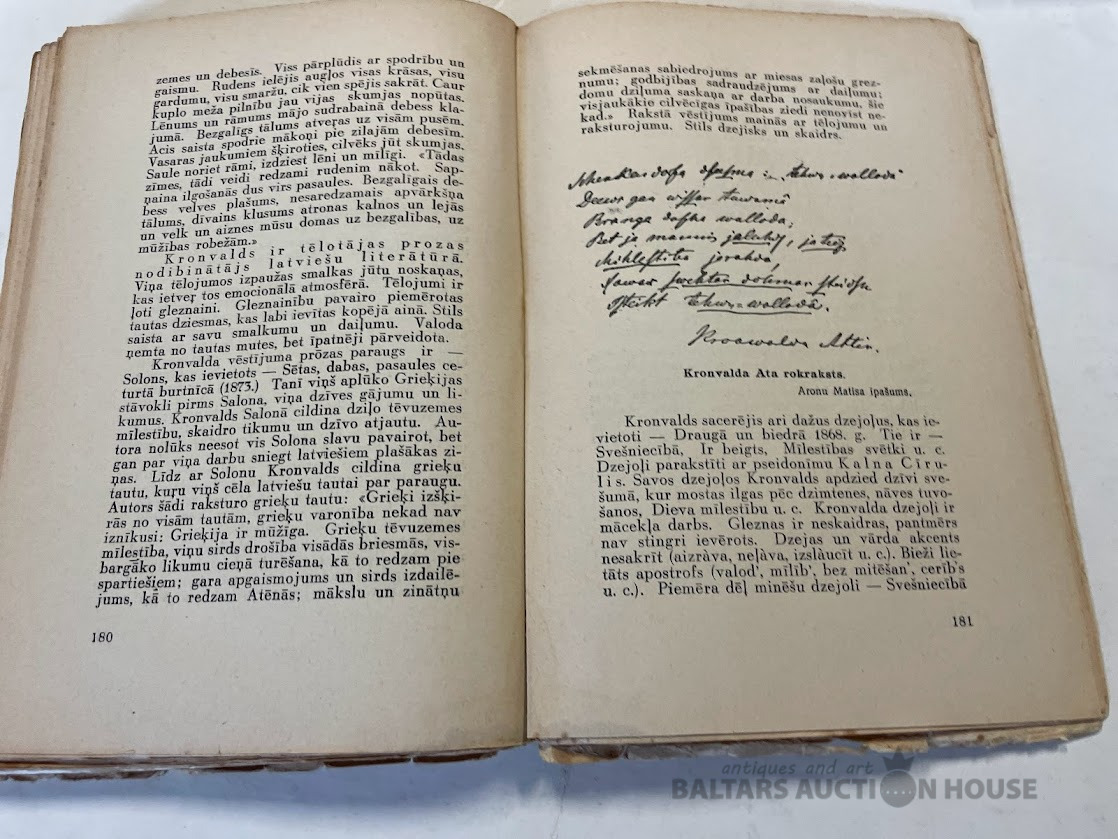 zemes un debesīs. Viss pārplūdis ar spodrību un
gaismu. Rudens ielējis augļos visas krāsas, visu
gardumu, visu smaržu, cik vien spējis sakrāt. Caur
kuplo meža pilnību jau vijas skumjas nopūtas.
Lēnums un rāmums mājo sudrabainā debess kla-
jumā. Bezgalīgs tālums atveras uz visām pusēm.
Acis saista spodrie mākoņi pie zilajām debesīm.
Vasaras jaukumiem šķiroties, cilvēks jūt skumjas.
Saule noriet rāmi, izdziest lēni un mīlīgi. «Tādas
zīmes, tādi veidi redzami rudenim nākot. Sap-
ņaina ilgošanās dus virs pasaules. Bezgalīgais de-
bess velves plašums, nesaredzamais apvārkšņa
tālums, dīvains klusums atronas kalnos un lejās
un velk un aiznes mūsu domas uz bezgalības, uz
mūžības robežām.»
Kronvalds ir tēlotājas prozas
nodibinātājs latviešu literātūrā.
Viņa tēlojumos izpaužas smalkas jūtu noskaņas,
kas ietver tos emocionālā atmosferā. Tēlojumi ir
ļoti gleznaini. Gleznainību pavairo piemērotas
tautas dziesmas, kas labi ievītas kopējā ainā. Stils
saista ar savu smalkumu un daiļumu. Valoda
ņemta no tautas mutes, bet īpatnēji pārveidota.
Kronvalda vēstījuma prōzas paraugs ir —
Solons, kas ievietots — Sētas, dabas, pasaules ce-
turtā burtnīcā (1873.) Tanī viņš aplūko Grieķijas
stāvokli pirms Salona, viņa dzīves gājumu un li-
kumus. Kronvalds Salonā cildina dziļo tēvuzemes
mīlestību, skaidro tikumu un dzīvo atjautu. Au-
tora nolūks neesot vis Solona slavu pavairot, bet
gan par viņa darbu sniegt latviešiem plašākas zi-
ņas. Līdz ar Solonu Kronvalds cildina grieķu
tautu, kuŗu viņš cēla latviešu tautai par paraugu.
Autors šādi raksturo grieķu tautu: «Grieķi izšķi-
rās no visām tautām, grieķu varonība nekad nav
iznīkusi: Grieķija ir mūžīga. Grieķu tēvuzemes
mīlestība, viņu sirds drošība visādās briesmās, vis-
bargāko likumu cieņā turēšana, kā to redzam pie
spartiešiem; gara apgaismojums un sirds izdailē-
jums, kā to redzam Atēnās; mākslu un zinātņu
180
sekmēšanas sabiedrojums ar miesas zaļošu grez-
numu; godbijības sadraudzējums ar daiļumu;
domu dziļuma saskaņa ar darba nosaukumu, šie
visjaukākie cilvēcīgas īpašības ziedi nenovīst ne-
kad.» Rakstā vēstījums mainās ar tēlojumu un
raksturojumu. Stils dzejisks un skaidrs.
Deewr gan wissar tawamā
Branga dascha walloda;
Bet ja mannis jalahdj, ja teiz
Kronwalda Attis.
Kronvalda Ata rokraksts.
Aronu Matīsa īpašums.
Kronvalds sacerējis ari dažus dzejoļus, kas ie-
vietoti — Draugā un biedrā 1868. g. Tie ir —
Svešniecībā, Ir beigts, Mīlestības svētki u. c.
Dzejoļi parakstīti ar pseidonīmu Kalna Cīru-
lis. Savos dzejoļos Kronvalds apdzied dzīvi sve-
šumā, kur mostas ilgas pēc dzimtenes, nāves tuvo-
šanos, Dieva mīlestību u. c. Kronvalda dzejoļi ir
mācekļa darbs. Gleznas ir neskaidras, pantmērs
nav stingri ievērots. Dzejas un vārda akcents
nesakrīt (aizràva, neļàva, izslàucīt u. c.). Bieži lie-
tāts apostrofs (valod', mīlīb', bez mitēšan', cerīb's
u. c.). Piemēra dēļ minēšu dzejoli — Svešniecībā
181
antiques and art
BALTARS AUCTION HOUSE